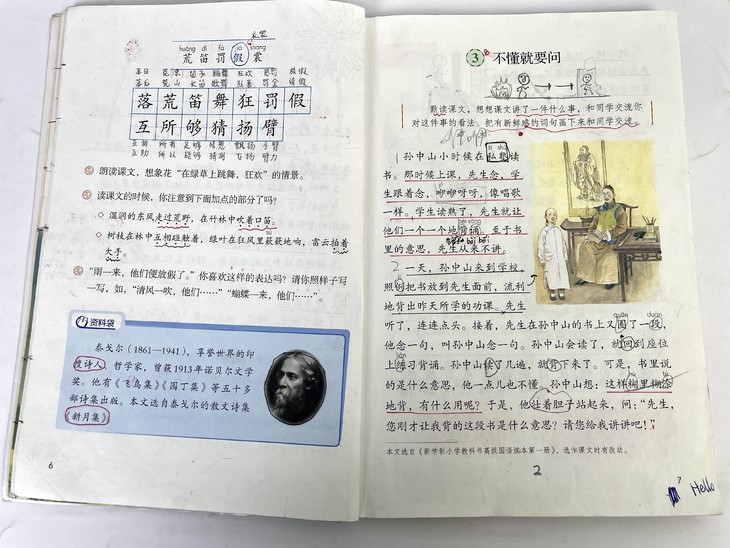 huāng dí fá jià shang
荒 笛 罚 假 裳
落荒笛舞狂罚假
互所够猜扬臂
朗读课文，想象花“在绿草上跳舞、狂欢”的情景。
读课文的时候，你注意到下面加点的部分了吗？
◇ 湿润的东风走过荒野，在竹林中吹着口笛。
◇ 树枝在林中互相碰触着，绿叶在狂风里簌簌地响，雷云拍着
大手。
“雨一来，他们便放假了。”你喜欢这样的表达吗？请你照样子写
一写，如，“清风一吹，他们……”“蝴蝶一来，他们……”。
资料袋
泰戈尔（1861—1941），享誉世界的印
度诗人、哲学家，曾获1913年诺贝尔文学
奖。他有《飞鸟集》《园丁集》等五十多
部诗集出版。本文选自泰戈尔的散文诗集
《新月集》。
6
3 不懂就要问
默读课文，想想课文讲了一件什么事，和同学交流你
对这件事的看法。把有新鲜感的词句画下来和同学交流。
孙中山小时候在私塾读
书。那时候上课，先生念，学
生跟着念，咿咿呀呀，像唱歌
一样。学生读熟了，先生就让
他们一个一个地背诵。至于书
里的意思，先生从来不讲。
2 一天，孙中山来到学校，
照例把书放到先生面前，流利
地背出昨天所学的功课。先生
听了，连连点头。接着，先生在孙中山的书上又圈了一段，
他念一句，叫孙中山念一句。孙中山会读了，就回到座位
上练习背诵。孙中山读了几遍，就背下来了。可是，书里说
的是什么意思，他一点儿也不懂。孙中山想：这样糊里糊涂
地背，有什么用呢？于是，他壮着胆子站起来，问：“先生，
您刚才让我背的这段书是什么意思？请您给我讲讲吧！”
本文选自《新学制小学教科书高级国语读本第一册》，选作课文时有改动。
2
7
Hello